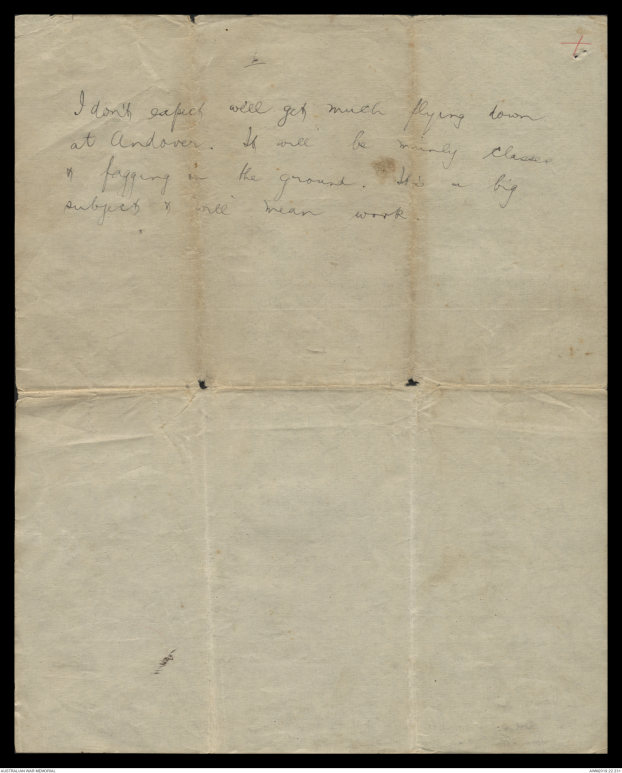 6
I don't expect we'll get much flying down
at Andover. It will be mainly classes
& fagging in the ground. It's a big
subject & will mean work.
AUSTRALIAN WAR MEMORIAL